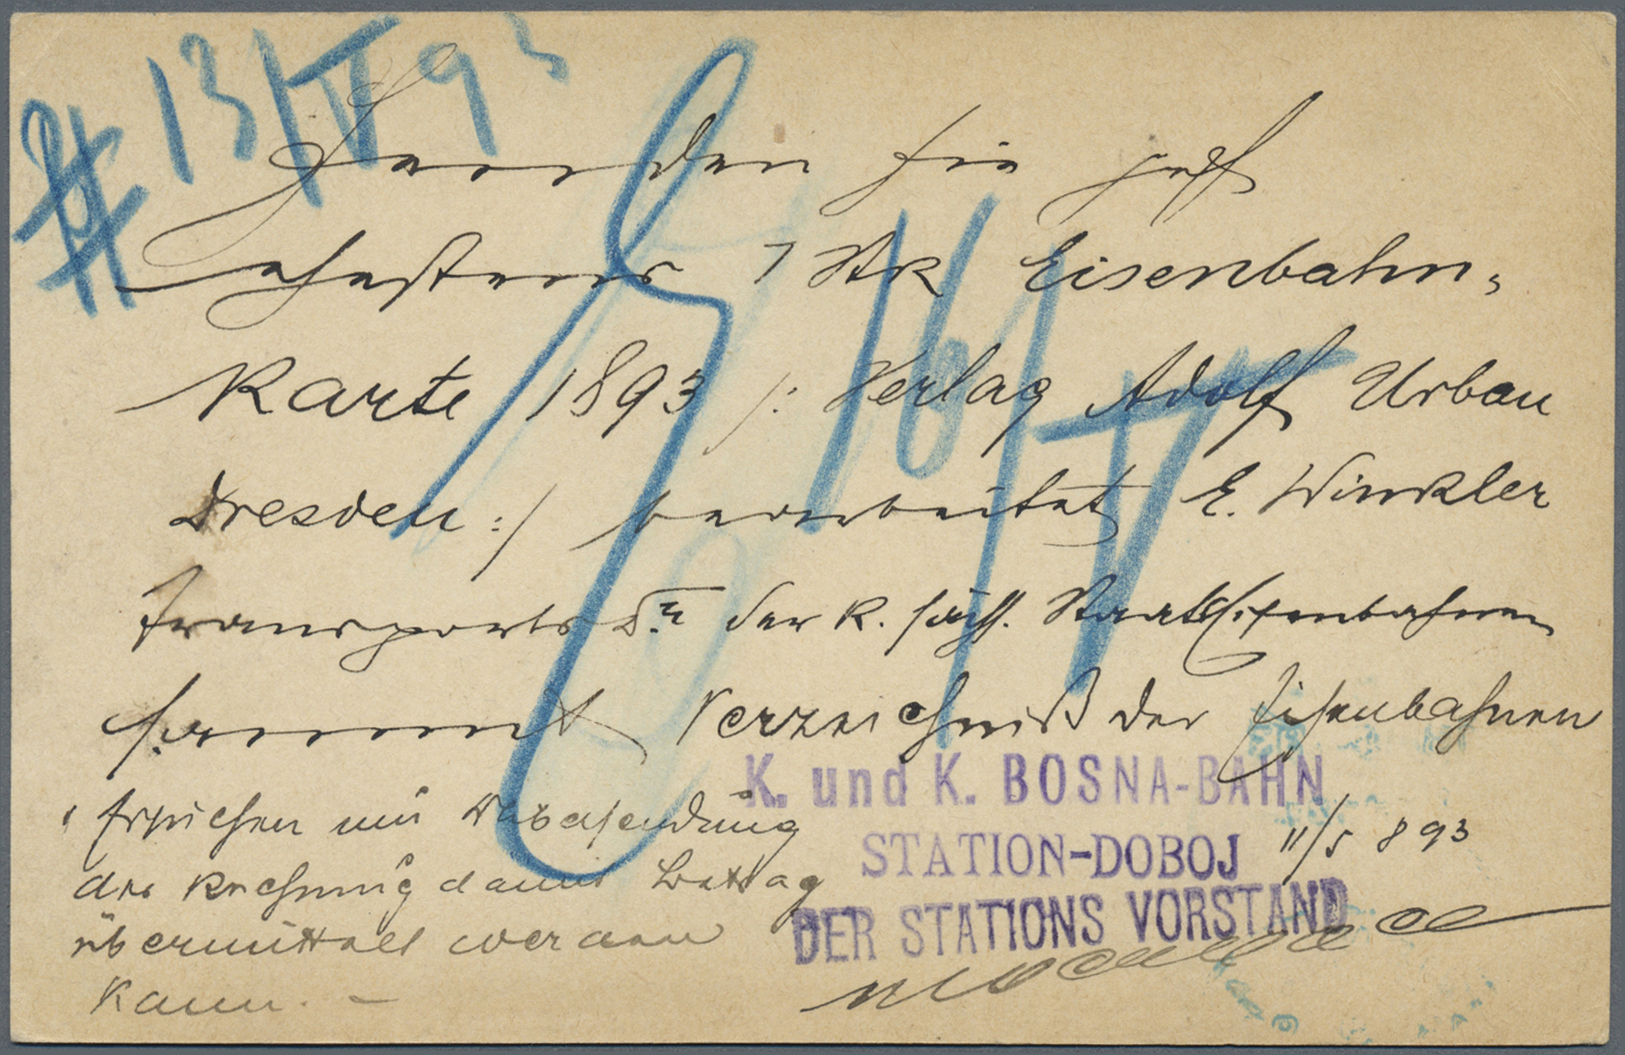 13/V 93
Senden Sie gefl
ehestens 1 Stk Eisenbahn-
Karte 1893 /: Verlag Adolf Urban
Dresden :/ bearbeitet E. Winkler
Transports der k. sächs. Staatseisenbahnen
sammt Verzeichniß der Eisenbahnen
Ersuchen um Übersendung
der Rechnung damit Betrag
übermittelt werden
kann. –
16/V
K. und K. BOSNA-BAHN
STATION-DOBOJ 11/5 893
DER STATIONS VORSTAND